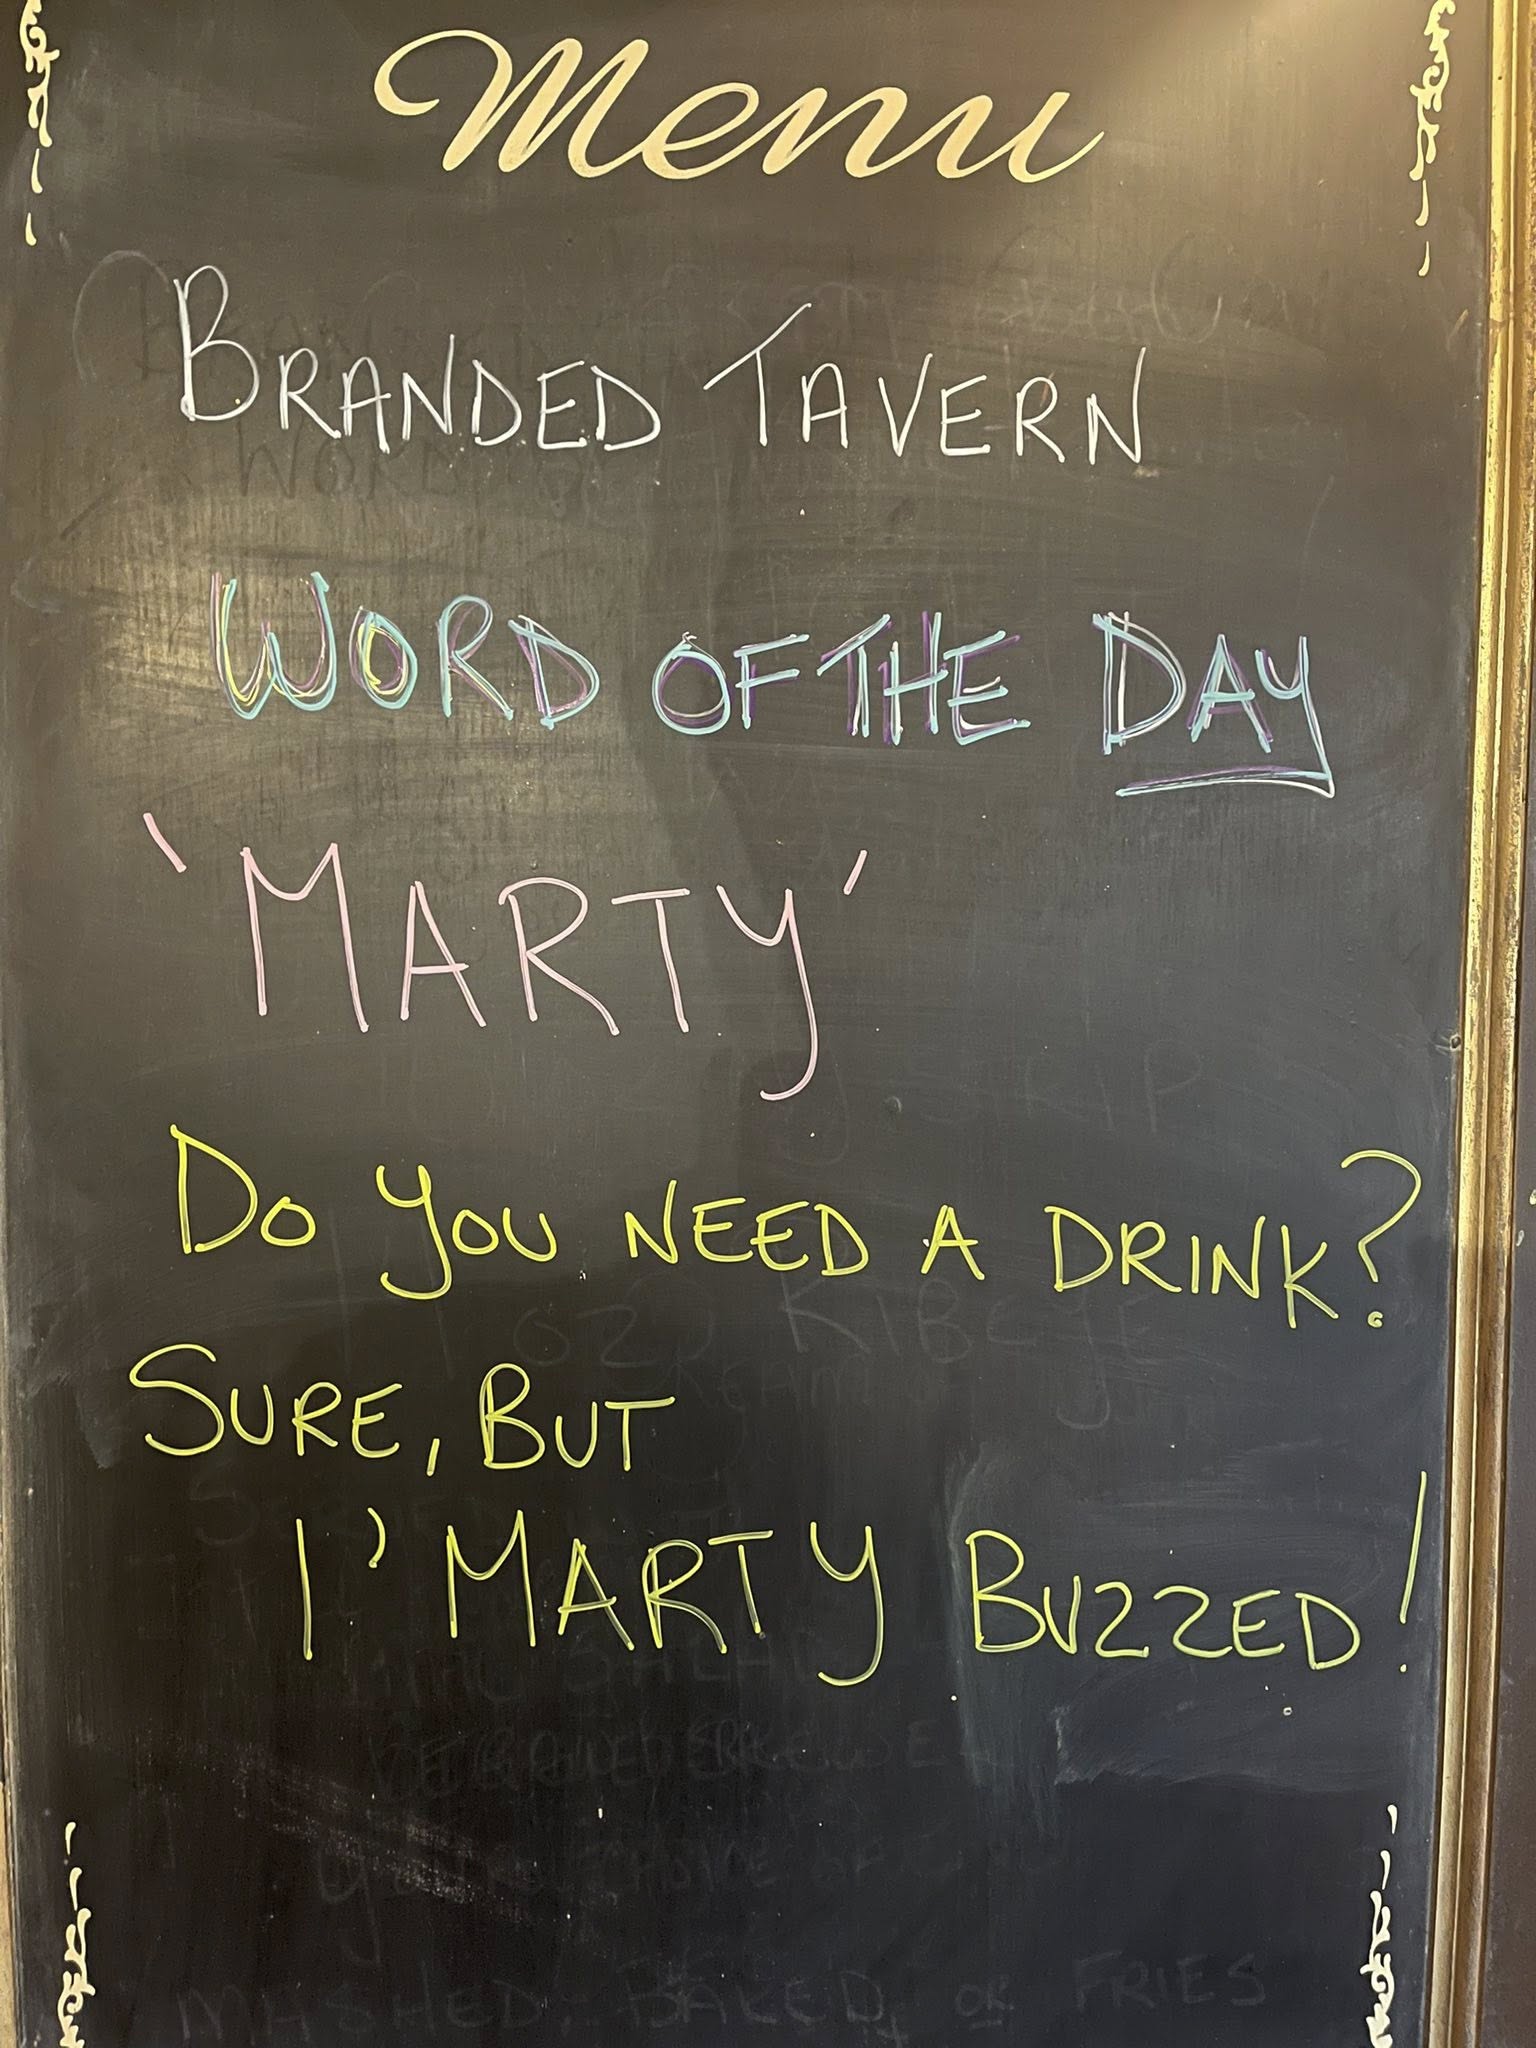 Menu
BRANDED TAVERN
WORD OF THE DAY
'MARTY'
DO YOU NEED A DRINK?
SURE, BUT
I'MARTY BUZZED!
MASHED, BAKED, OR FRIES